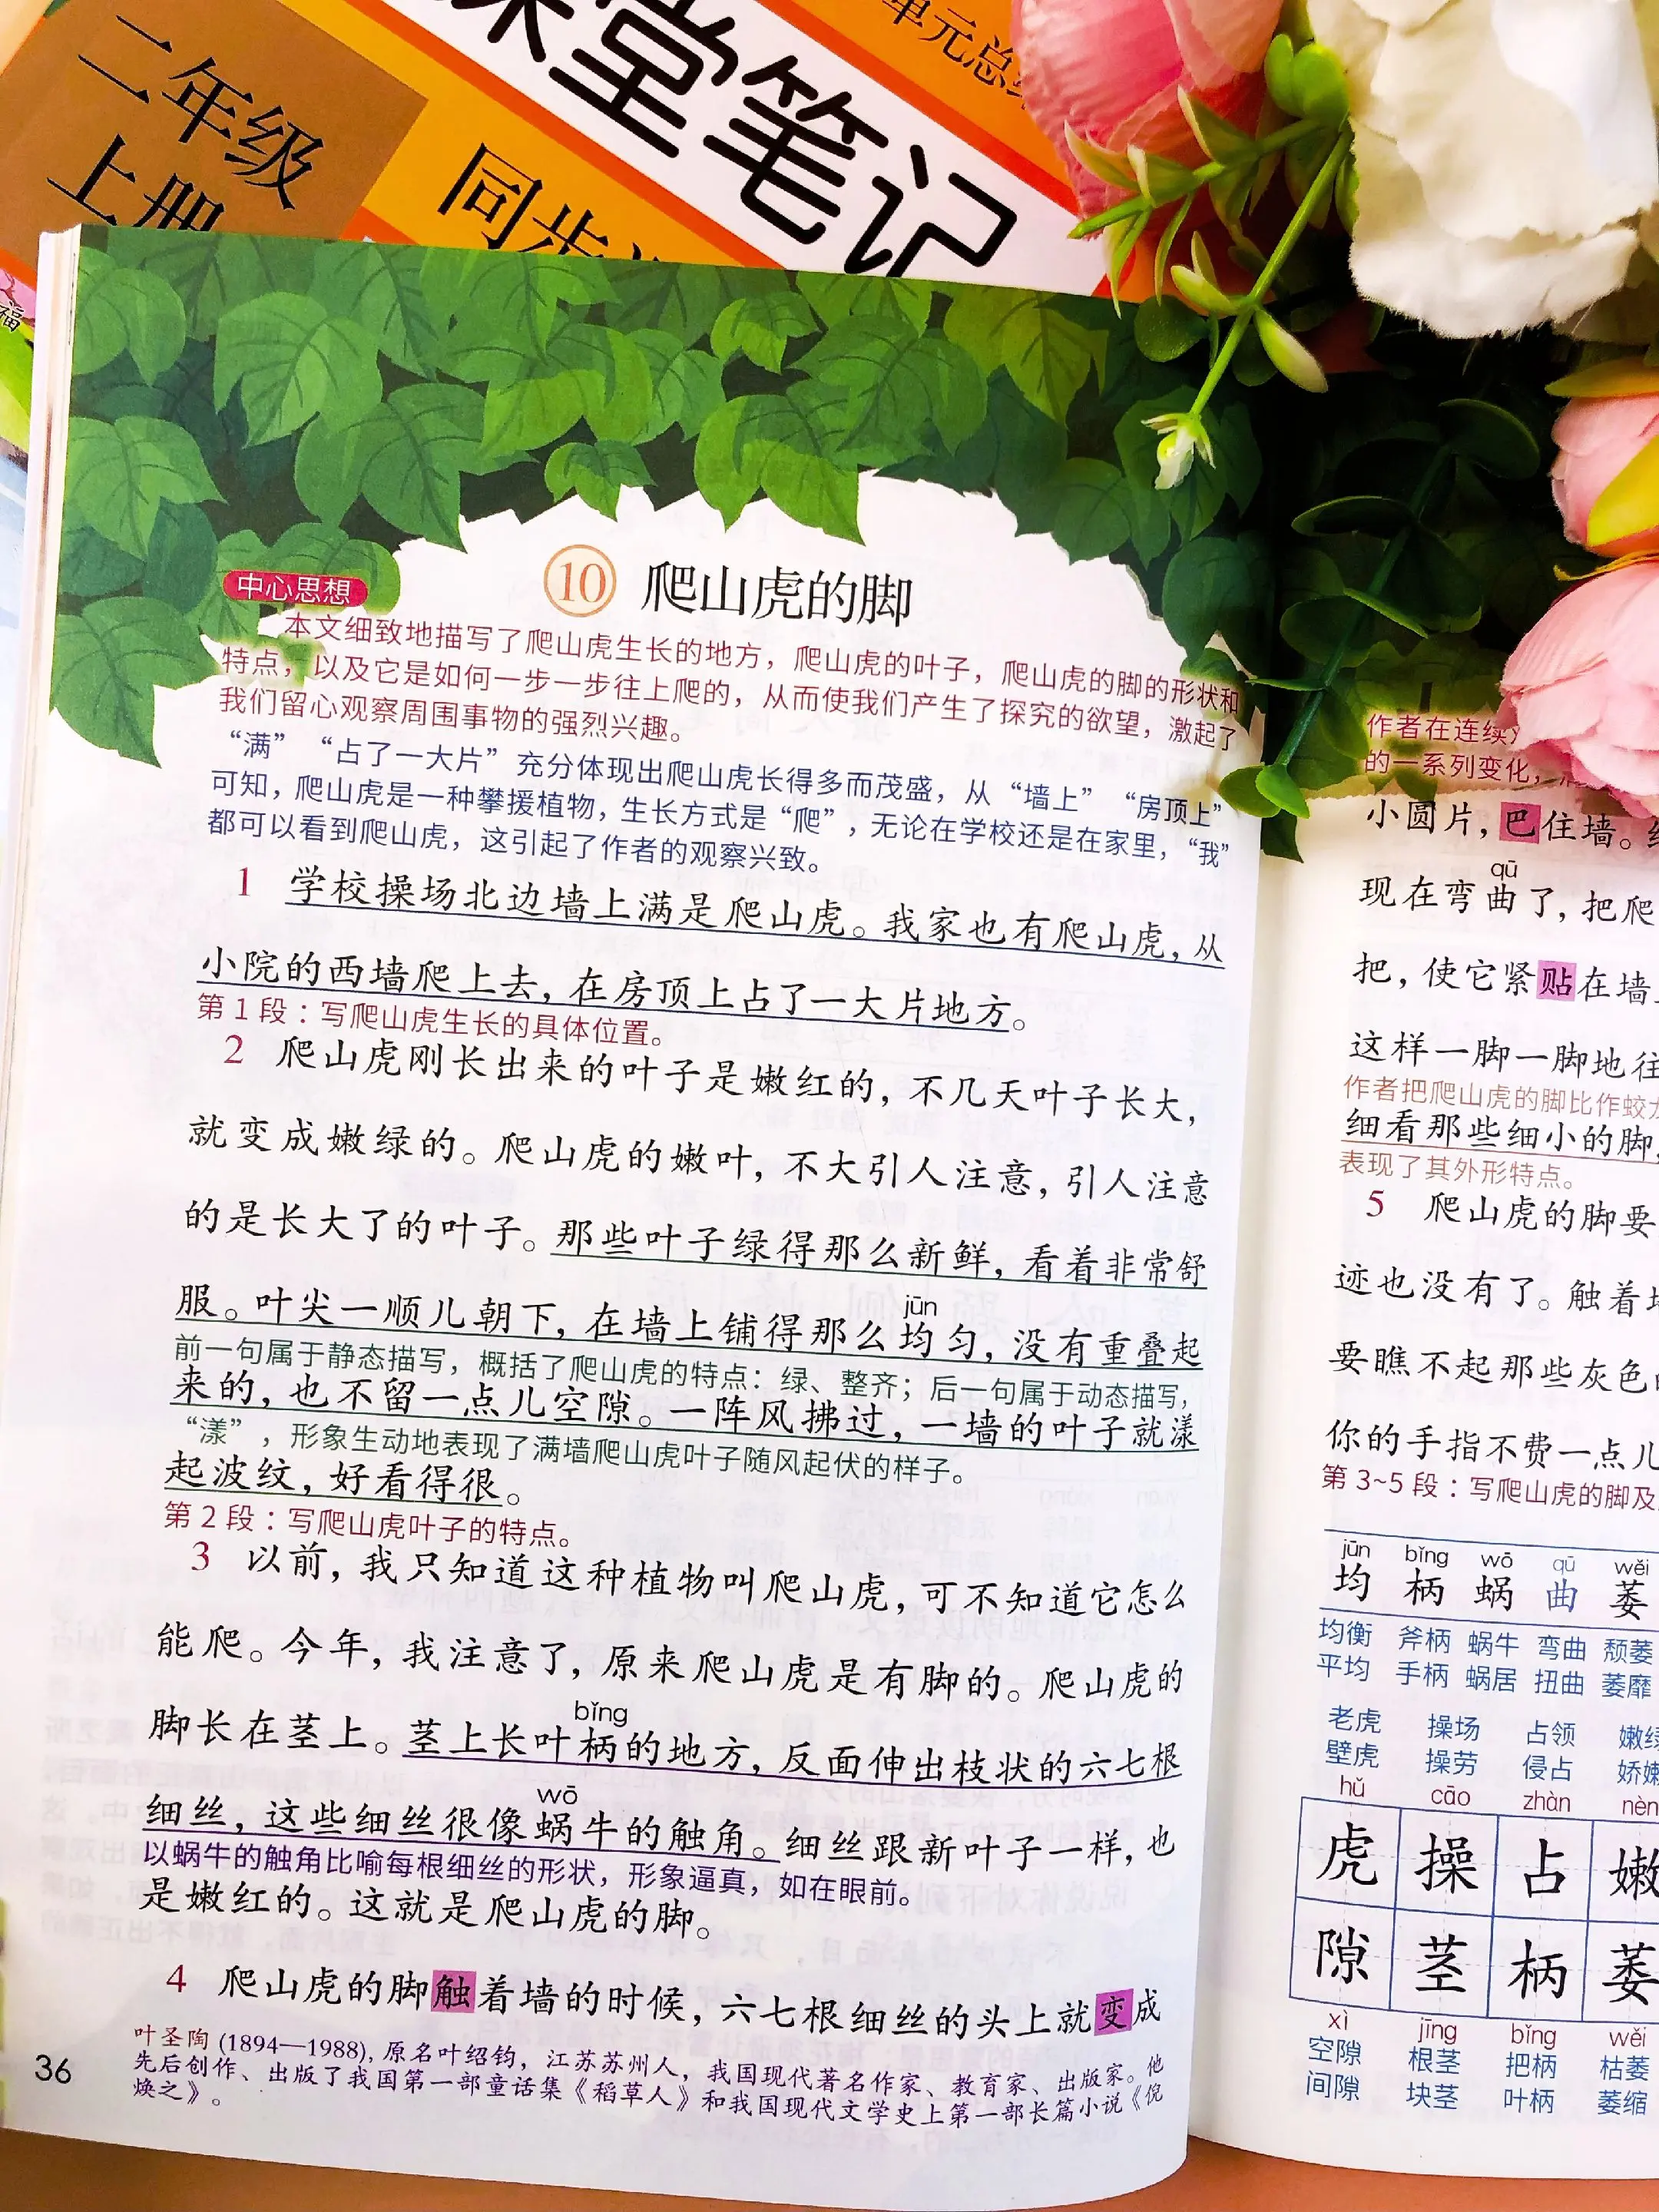 二年级
上册
同步
课堂笔记
单元总
福
中心思想
10 爬山虎的脚
本文细致地描写了爬山虎生长的地方，爬山虎的叶子，爬山虎的脚的形状和
特点，以及它是如何一步一步往上爬的，从而使我们产生了探究的欲望，激起了
我们留心观察周围事物的强烈兴趣。
“满”“占了一大片”充分体现出爬山虎长得多而茂盛，从“墙上”“房顶上”
可知，爬山虎是一种攀援植物，生长方式是“爬”，无论在学校还是在家里，“我”
都可以看到爬山虎，这引起了作者的观察兴致。
1 学校操场北边墙上满是爬山虎。我家也有爬山虎，从
小院的西墙爬上去，在房顶上占了一大片地方。
第1段：写爬山虎生长的具体位置。
2 爬山虎刚长出来的叶子是嫩红的，不几天叶子长大，
就变成嫩绿的。爬山虎的嫩叶，不大引人注意，引人注意
的是长大了的叶子。那些叶子绿得那么新鲜，看着非常舒
jūn
服。叶尖一顺儿朝下，在墙上铺得那么均匀，没有重叠起
前一句属于静态描写，概括了爬山虎的特点：绿、整齐；后一句属于动态描写，
来的，也不留一点儿空隙。一阵风拂过，一墙的叶子就漾
“漾”，形象生动地表现了满墙爬山虎叶子随风起伏的样子。
起波纹，好看得很。
第2段：写爬山虎叶子的特点。
3 以前，我只知道这种植物叫爬山虎，可不知道它怎么
能爬。今年，我注意了，原来爬山虎是有脚的。爬山虎的
bǐng
脚长在茎上。茎上长叶柄的地方，反面伸出枝状的六七根
wō
细丝，这些细丝很像蜗牛的触角。细丝跟新叶子一样，也
以蜗牛的触角比喻每根细丝的形状，形象逼真，如在眼前。
是嫩红的。这就是爬山虎的脚。
4 爬山虎的脚触着墙的时候，六七根细丝的头上就变成
叶圣陶 (1894—1988)，原名叶绍钧，江苏苏州人，我国现代著名作家、教育家、出版家。他
先后创作、出版了我国第一部童话集《稻草人》和我国现代文学史上第一部长篇小说《倪
焕之》。
36
作者在连续
的一系列变化，
小圆片，巴住墙。
qū
现在弯曲了，把爬
把，使它紧贴在墙
这样一脚一脚地往
作者把爬山虎的脚比作蛟
细看那些细小的脚，
表现了其外形特点。
5 爬山虎的脚要
迹也没有了。触着
要瞧不起那些灰色
你的手指不费一点儿
第3~5段：写爬山虎的脚及
jūn bǐng wō qū wěi
均 柄 蜗 曲 萎
均衡 斧柄 蜗牛 弯曲 颓萎
平均 手柄 蜗居 扭曲 萎靡
老虎 操场 占领 嫩绿
壁虎 操劳 侵占 娇嫩
hǔ cāo zhàn nèn
虎 操 占 嫩
隙 茎 柄 萎
xì jīng bǐng wěi
空隙 根茎 把柄 枯萎
间隙 块茎 叶柄 萎缩